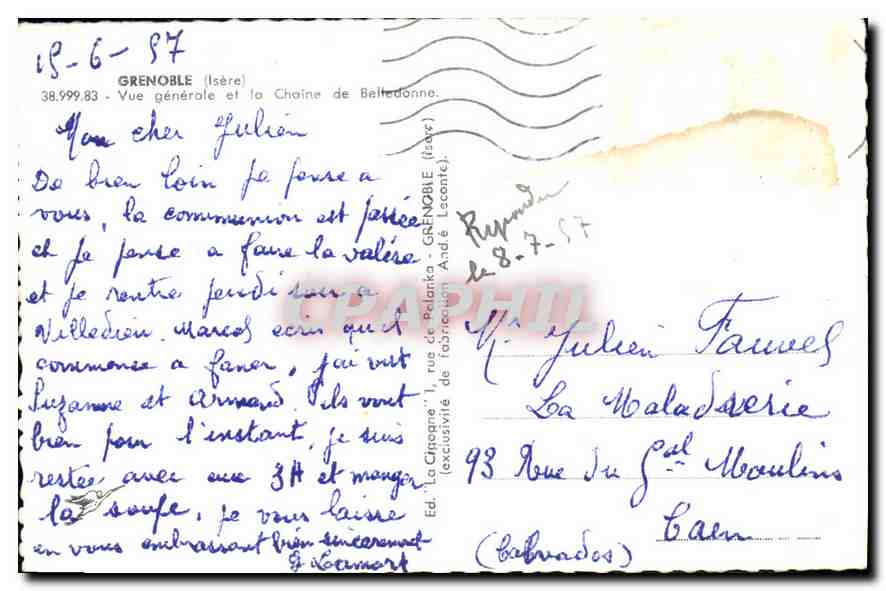 15-6-57
GRENOBLE (Isère)
38.999.83 - Vue générale et la Chaîne de Belledonne.
Mon cher Julien
De bien loin je pense a
vous, la communion est passée
et je pense a faire la valise
et je rentre jeudi soir a
Villedieu. Marcel ecrit qu'il
commence a faner, j'ai vut
Suzanne et Armand. ils vont
bien pour l'instant, je suis
restée avec eux 3H et manger
la soupe, je vous laisse
en vous embrassant bien sincerement
Ed. "La Cigogne" 1, rue de Palanka - GRENOBLE (Isère)
(exclusivité de fabrication André Leconte).
Repondu
le 8-7-57
Mr Julien Fauvel
La Maladrerie
93 Rue du Gal Moulins
Caen
(Calvados)
CPAPHIL